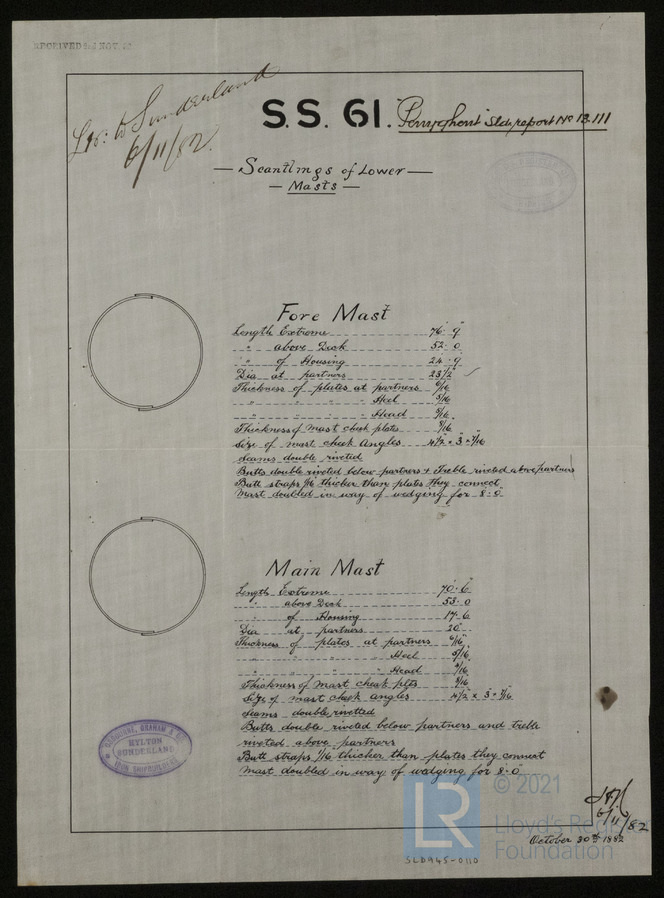 RECEIVED NOV
Sunderland
6/11/82.
S.S. 61. Penyghent Sld, report No 13.111
Scantlings of Lower
Masts
Fore Mast
Length Extreme 76. 9"
" above Deck 52. 0
" of Housing 24. 9
Dia at partners 23 1/2"
Thickness of plates at partners /16
" " " " Heel 5/16
" " " " Head /16
Thickness of mast cheek plats /16
Size of mast cheek Angles 4 1/2 × 3 × 7/16
Seams double riveted
Butts double riveted below partners & Treble riveted above partners
Butt straps 1/16 thicker than plates they connect
Mast doubled in way of wedging for 8.0
Main Mast
Length Extreme 70. 6
" above Deck 53. 0
" of Housing 17. 6
Dia at partners 20"
Thickness of plates at partners 6/16
" " " " Heel 5/16
" " " " Head 5/16
Thickness of mast cheek plts /16
Size of mast cheek angles 4 1/2 × 3 × 7/16
Seams double rivetted
Butts double riveted below partners and treble
riveted above partners
Butt straps 1/16 thicker than plates they connect
Mast doubled in way of wedging for 8.0
OSBOURNE, GRAHAM & Co
HYLTON
SUNDERLAND
IRON SHIPBUILDERS
6/11/82
October 30th 1882
SLD945-0110
LR
© 2021
Lloyd's Register
Foundation